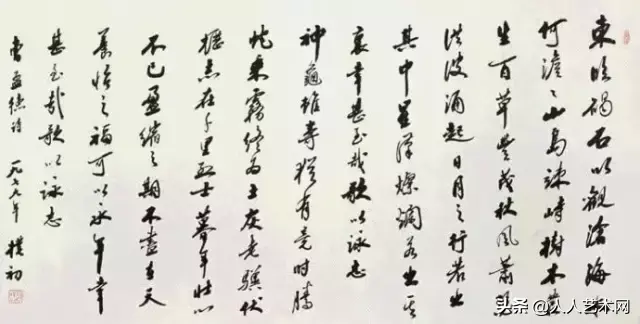 東臨碣石以觀滄海水
何澹〻山島竦峙樹木叢
生百草豐茂秋風蕭瑟
洪波涌起日月之行若出
其中星漢燦爛若出其
裏幸甚至哉歌以詠志
神龜雖壽猶有竟時騰
蛇乘霧終為土灰老驥伏
櫪志在千里烈士暮年壯心
不已盈縮之期不盡在天
養怡之福可以永年幸
甚至哉歌以詠志
曹孟德詩 樸初
头条 @人人艺术网